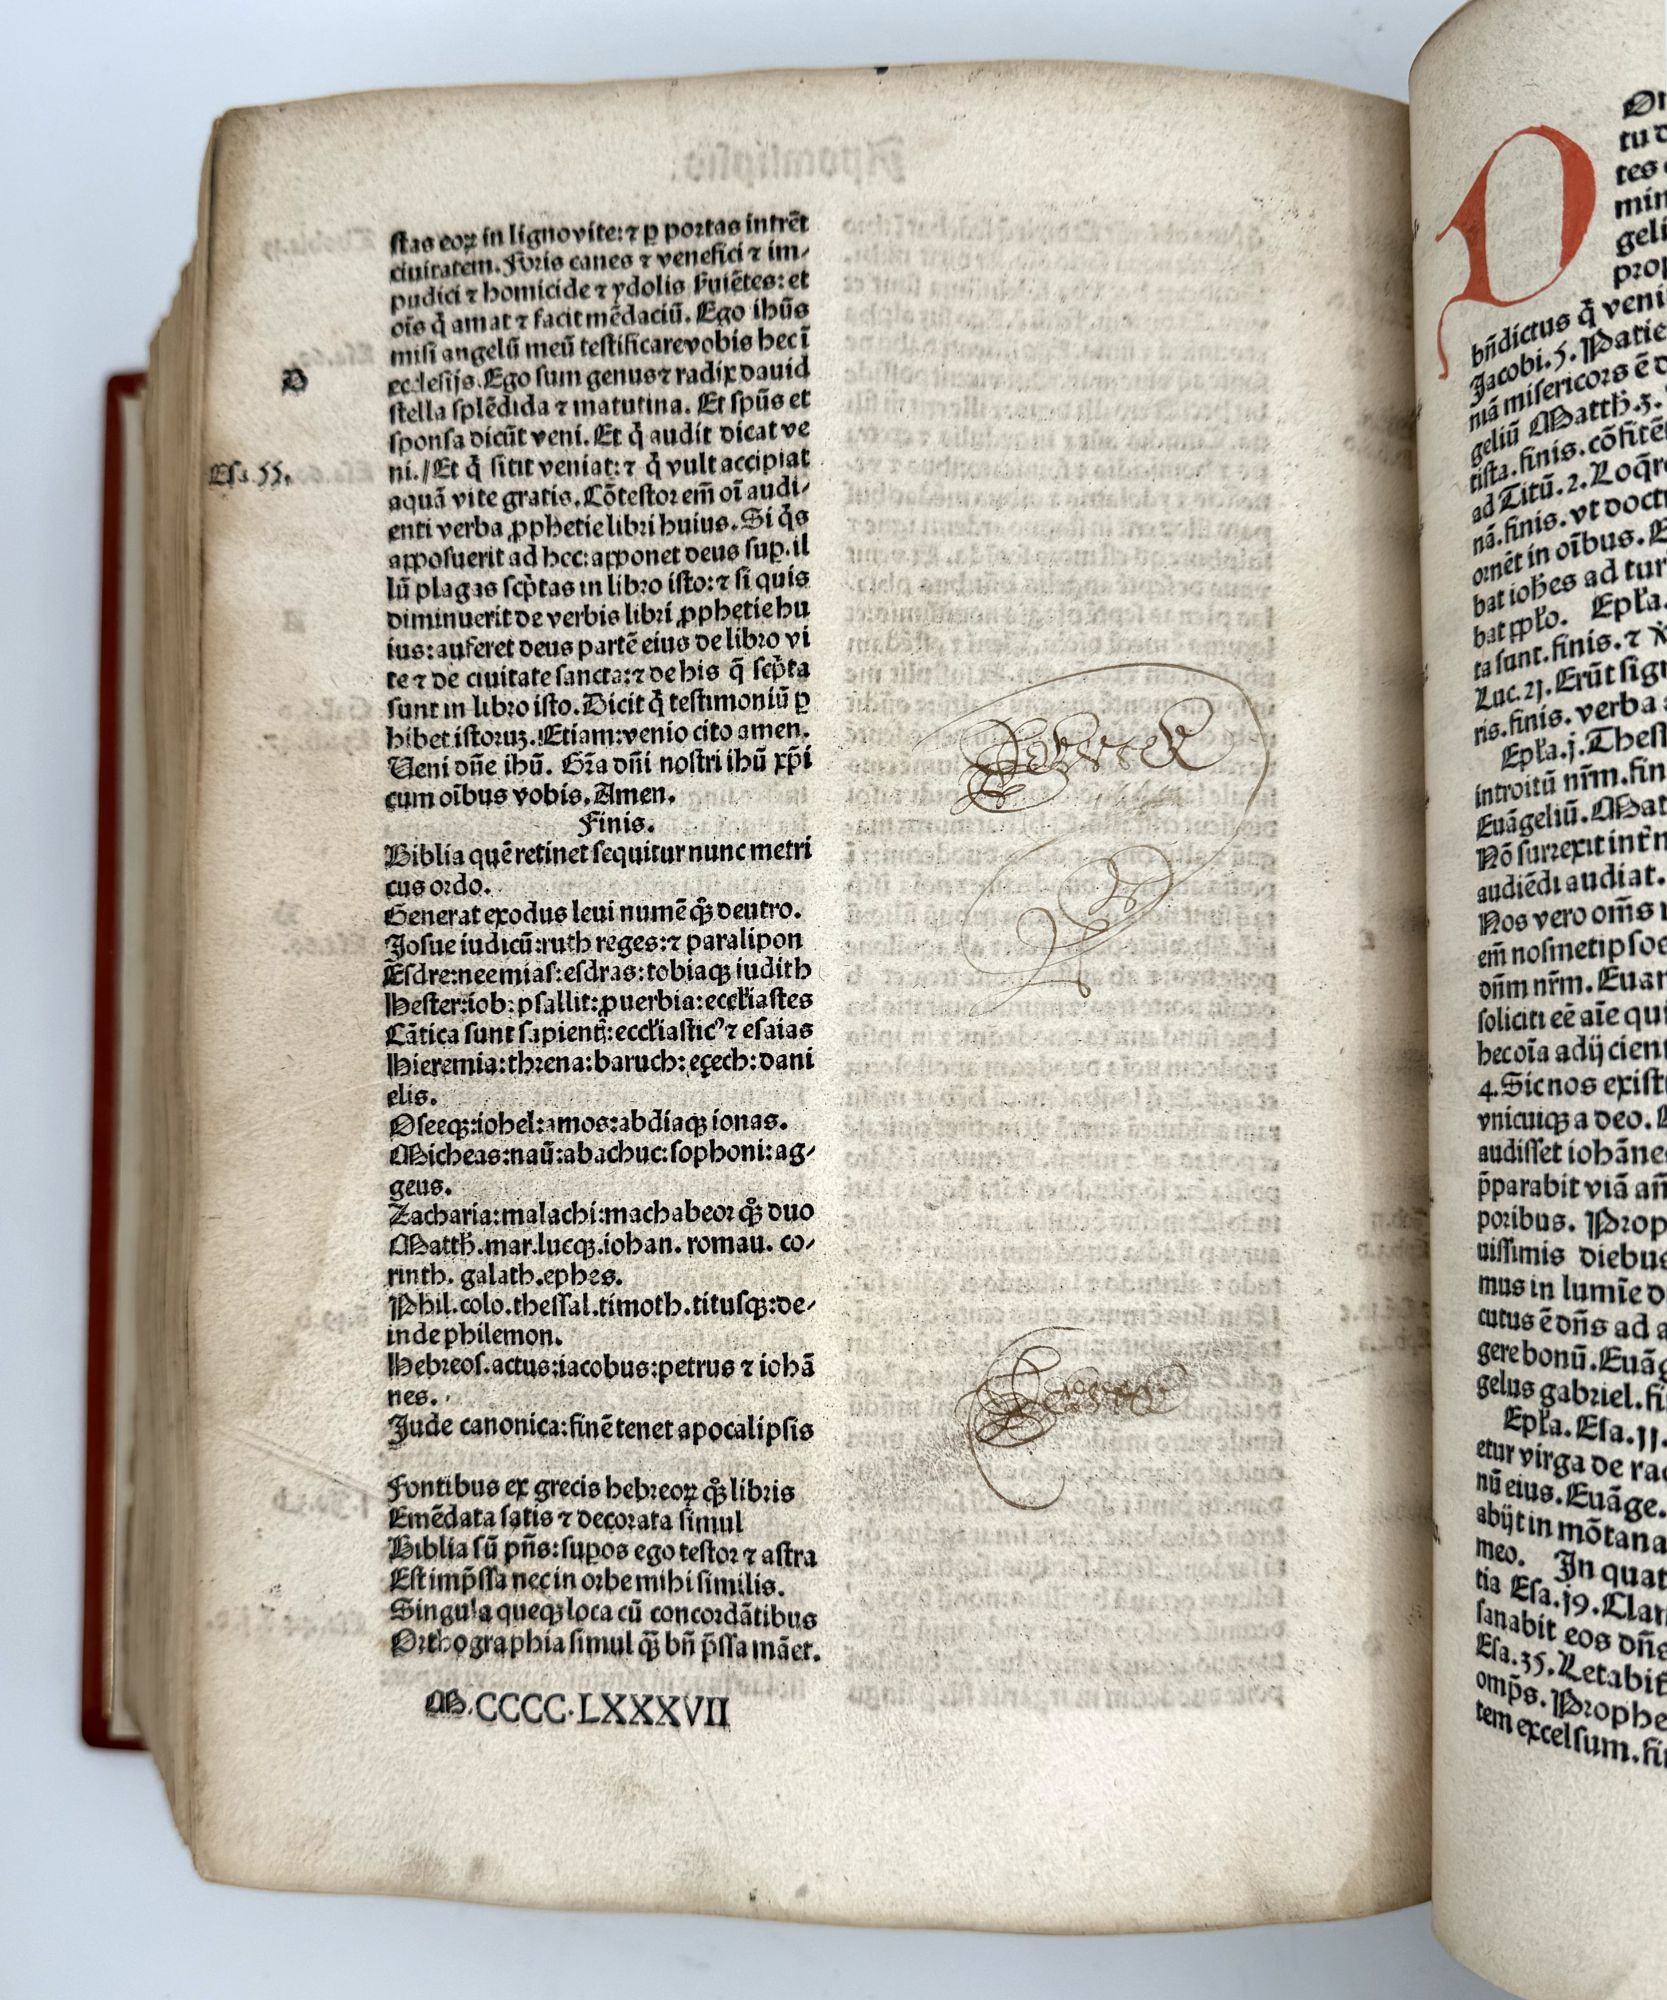 ſtas eoꝝ in ligno vite: ⁊ ꝑ portas intrēt
ciuitatem. Foris canes ⁊ venefici ⁊ im⸗
pudici ⁊ homicide ⁊ ydolis ẜuiētes: et
oīs q̇ amat ⁊ facit mēdaciū. Ego ihūs
miſi angelū meū teſtificare vobis hec ī
eccleſijs. Ego ſum genus ⁊ radix dauid
D
ſtella ſplēdida ⁊ matutina. Et ſpūs et
ſponſa dicūt veni. Et q̇ audit dicat ve
ni. / Et q̇ ſitit veniat: ⁊ q̇ vult accipiat
Eſa. 55.
aquā vite gratis. Cōteſtor em̄ oī audi⸗
enti verba ꝓphetie libri huius. Si q̇s
appoſuerit ad hec: apponet deus ſup. il
lū plagas ſcp̄tas in libro iſto: ⁊ ſi quis
diminuerit de verbis libri ꝓphetie hu
ius: auferet deus partē eius de libro vi
te ⁊ de ciuitate ſancta: ⁊ de his q̄ ſcp̄ta
ſunt in libro iſto. Dicit q̇ teſtimoniū ꝑ
hibet iſtoruꝫ. Etiam: venio cito amen.
Veni dn̄e ihū. Gr̄a dn̄i noſtri ihū xp̄i
cum oībus vobis. Amen.
Finis.
Biblia quē retinet ſequitur nunc metri
cus ordo.
Generat exodus leui numē qꝫ deutro.
Joſue iudicū: ruth reges: ⁊ paralipon
Eſdre: neemiaſ: eſdras: tobiaqꝫ iudith
Heſter: iob: pſallit: ꝓuerbia: eccłiaſtes
Cātica ſunt ſapient̄: eccłiaſticꝰ ⁊ eſaias
Hieremia: threna: baruch: eçech: dani
elis.
Oſeeqꝫ: iohel: amos: abdiaqꝫ ionas.
Micheas: naū: abachuc: ſophoni: ag⸗
geus.
Zacharia: malachi: machabeor qꝫ duo
Matth̄. mar. lucqꝫ. iohan. romau. co⸗
rinth. galath. ephes.
Phil. colo. theſſal. timoth. tituſqꝫ: de⸗
inde philemon.
Hebreoſ. actus: iacobus: petrus ⁊ iohā
nes.
Jude canonica: finē tenet apocalipſis
Fontibus ex grecis hebreoꝝ qꝫ libris
Emēdata ſatis ⁊ decorata ſimul
Biblia ſū pn̄s: ſuꝑos ego teſtor ⁊ aſtra
Eſt imp̄ſſa nec in orbe mihi ſimilis.
Singula queqꝫ loca cū concordātibus
Orthographia ſimul qꝫ bn̄ p̄ſſa māet.
M.CCCC.LXXXVII
D
tu d
tes
min
geli
prop
bn̄dictus q̇ veni
Jacobi. 5. Patie
niā miſericors ē d
geliū Matth̄. 3.
tiſta. finis. cōfitē
ad Titū. 2. Loq̄re
nā. finis. vt doctr
ornēt in oībus. E
bat iohes ad tur
bat pp̄lo. Epła.
ta ſunt. finis. ⁊
Luc. 21. Erūt ſig
ris. finis. verba
Epła. j. Theſſ
introitū nr̄m. fin
Euāgeliū. Mat
Nō ſurrexit int̄ n
audiēdi audiat.
Nos vero om̄s
em̄ noſmetipſos
dn̄m nr̄m. Euan
ſoliciti eē aīe qui
hec oīa adijcient
4. Sic nos exiſt
vnicuiqꝫ a deo.
audiſſet iohāne
p̄parabit viā an̄
poribus. Prop
uiſſimis diebus
mus in lumīe d
cutus ē dn̄s ad a
gere bonū. Euāg
gelus gabriel. fi
Epła. Eſa. 11.
etur virga de rad
nū eius. Euāge.
abijt in mōtana
meo. In quat
tia Eſa. 19. Clam
ſanabit eos dn̄s
Eſa. 35. Letabit̄
omp̄s. Prophe
tem excelſum. fi